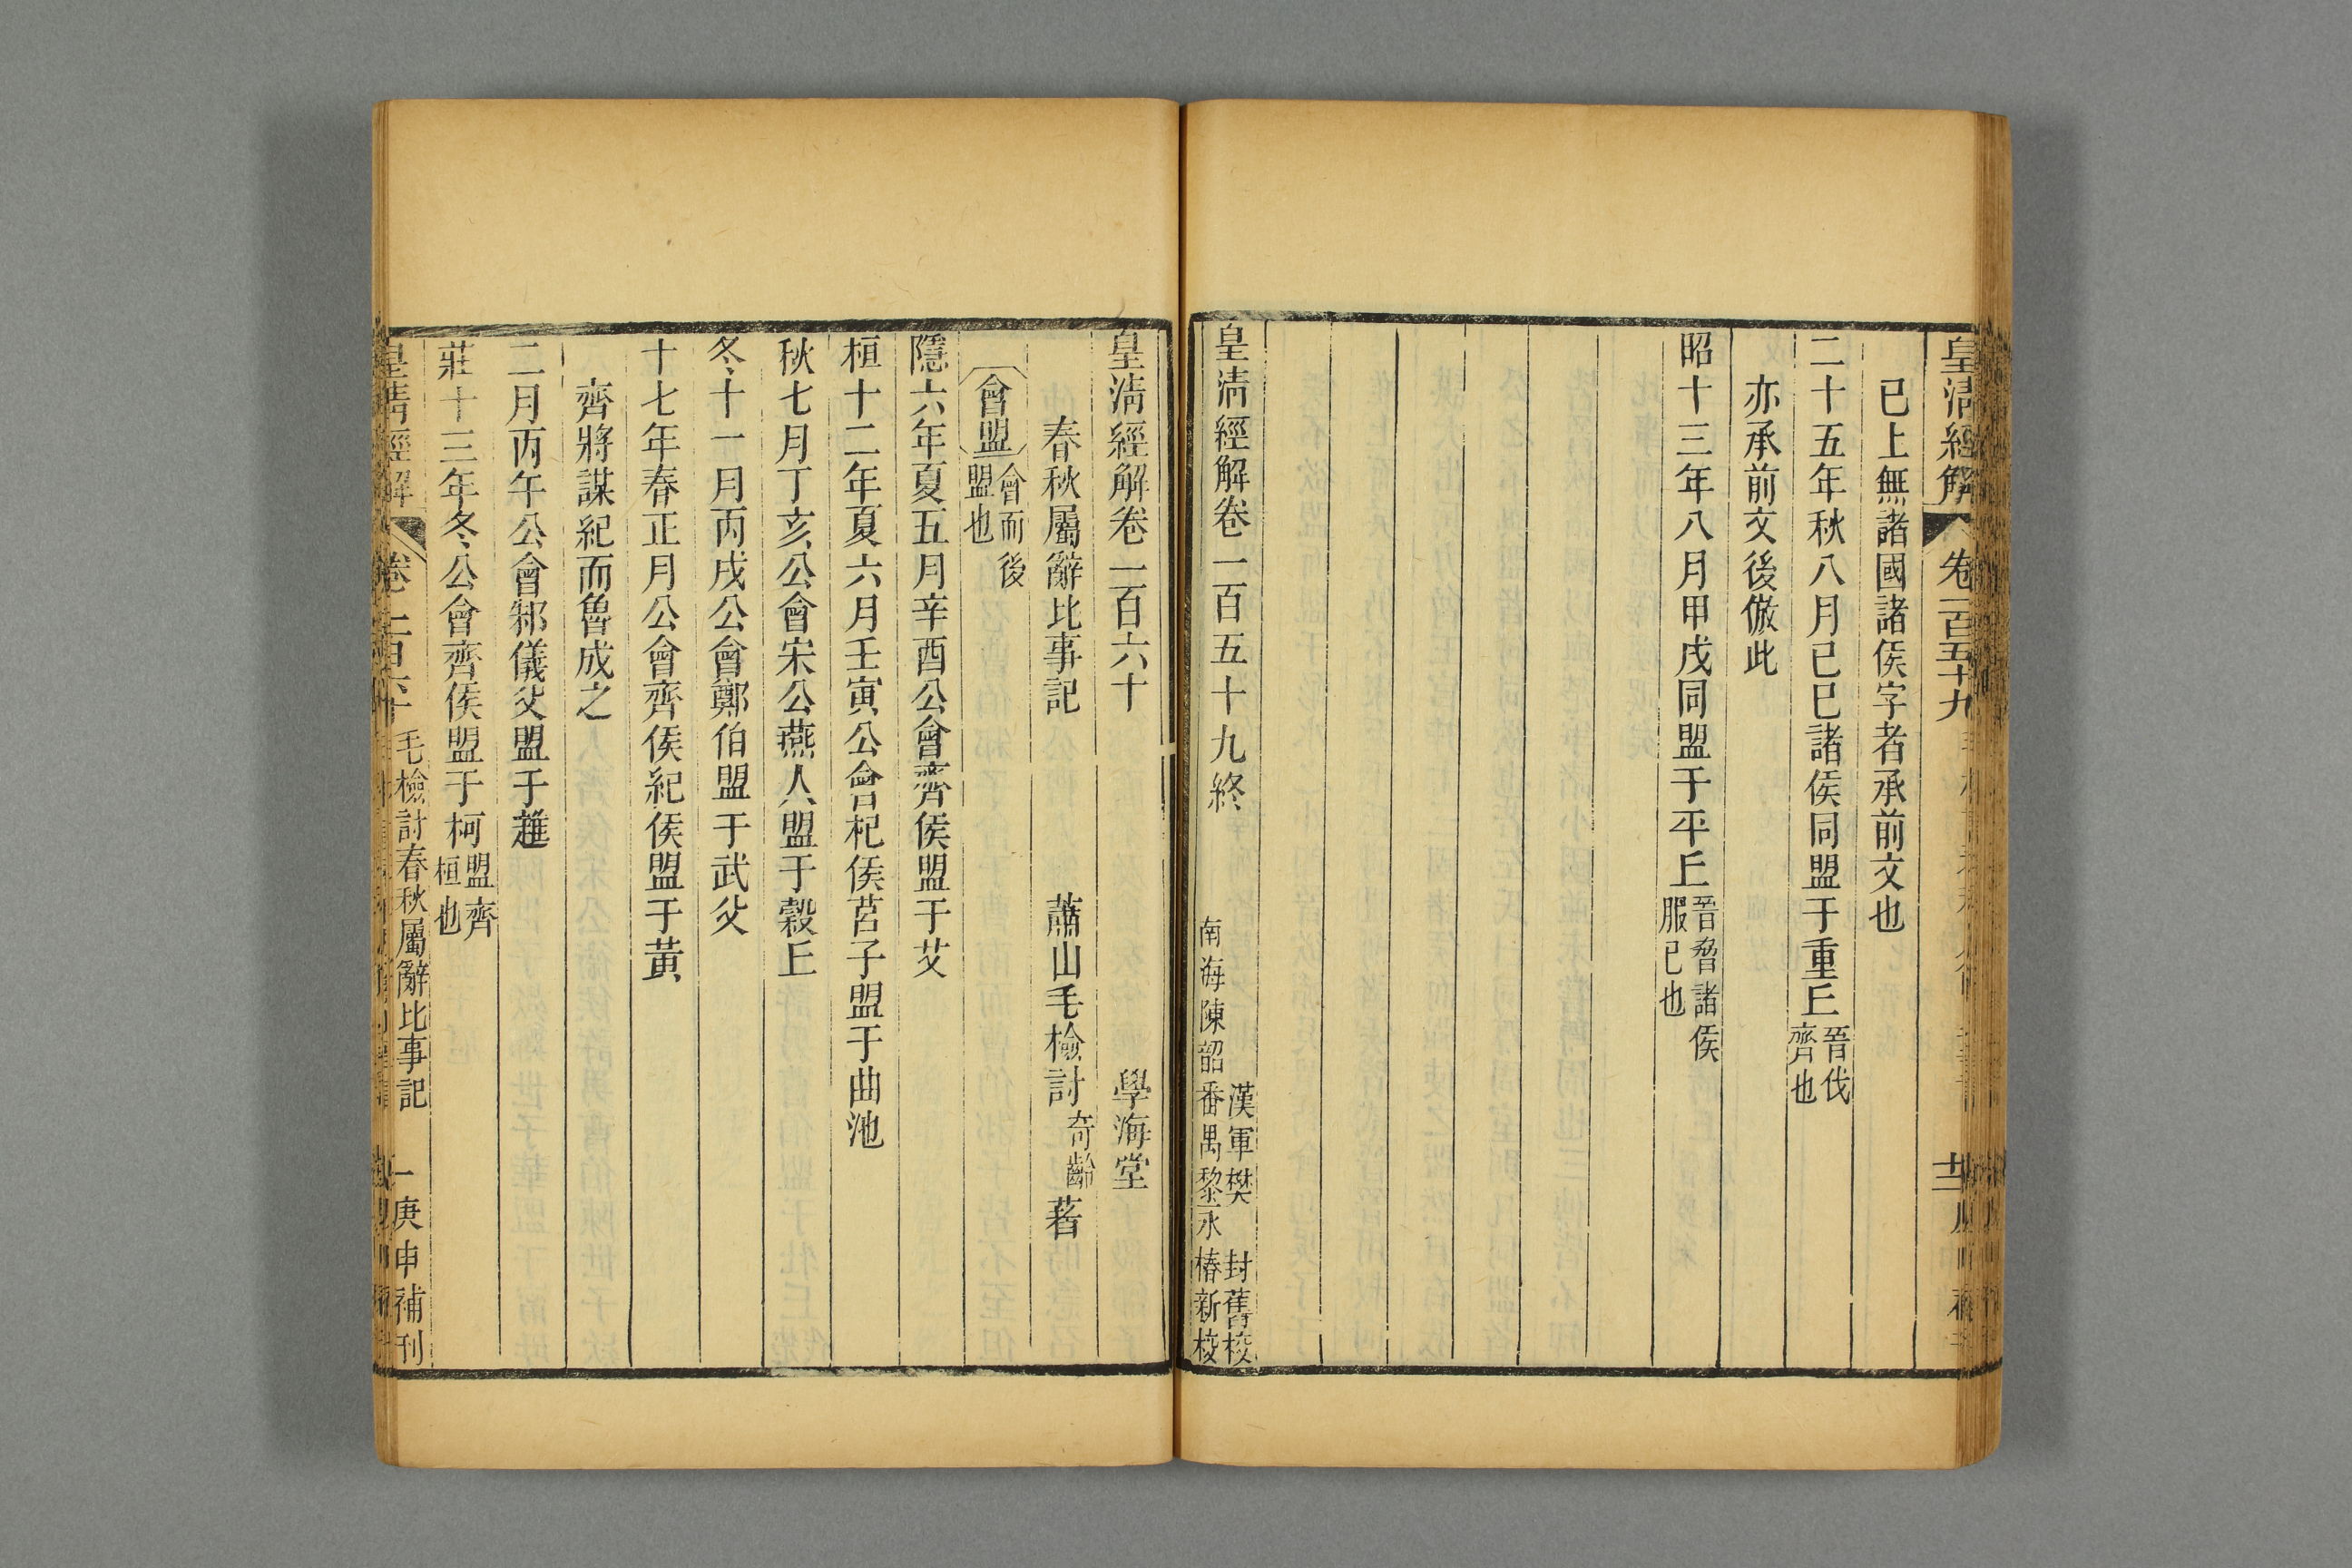 皇淸經解 卷一百五十九
已上無諸國諸侯字者承前文也
二十五年秋八月己巳諸侯同盟于重丘晉伐齊也
亦承前文後倣此
昭十三年八月甲戌同盟于平丘晉脅諸侯服已也
皇淸經解卷一百五十九終
漢軍樊封舊校
南海陳韶番禺黎永椿新校
皇淸經解卷一百六十 學海堂
春秋屬辭比事記 蕭山毛檢討奇齡著
會盟會而後盟也
隱六年夏五月辛酉公會齊侯盟于艾
桓十二年夏六月壬寅公會杞侯莒子盟于曲池
秋七月丁亥公會宋公燕人盟于穀丘
冬十一月丙戌公會鄭伯盟于武父
十七年春正月公會齊侯紀侯盟于黃
齊將謀紀而魯成之
二月丙午公會邾儀父盟于趡
莊十三年冬公會齊侯盟于柯盟齊桓也
皇淸經解 卷一百六十 毛檢討春秋屬辭比事記 一 庚申補刊